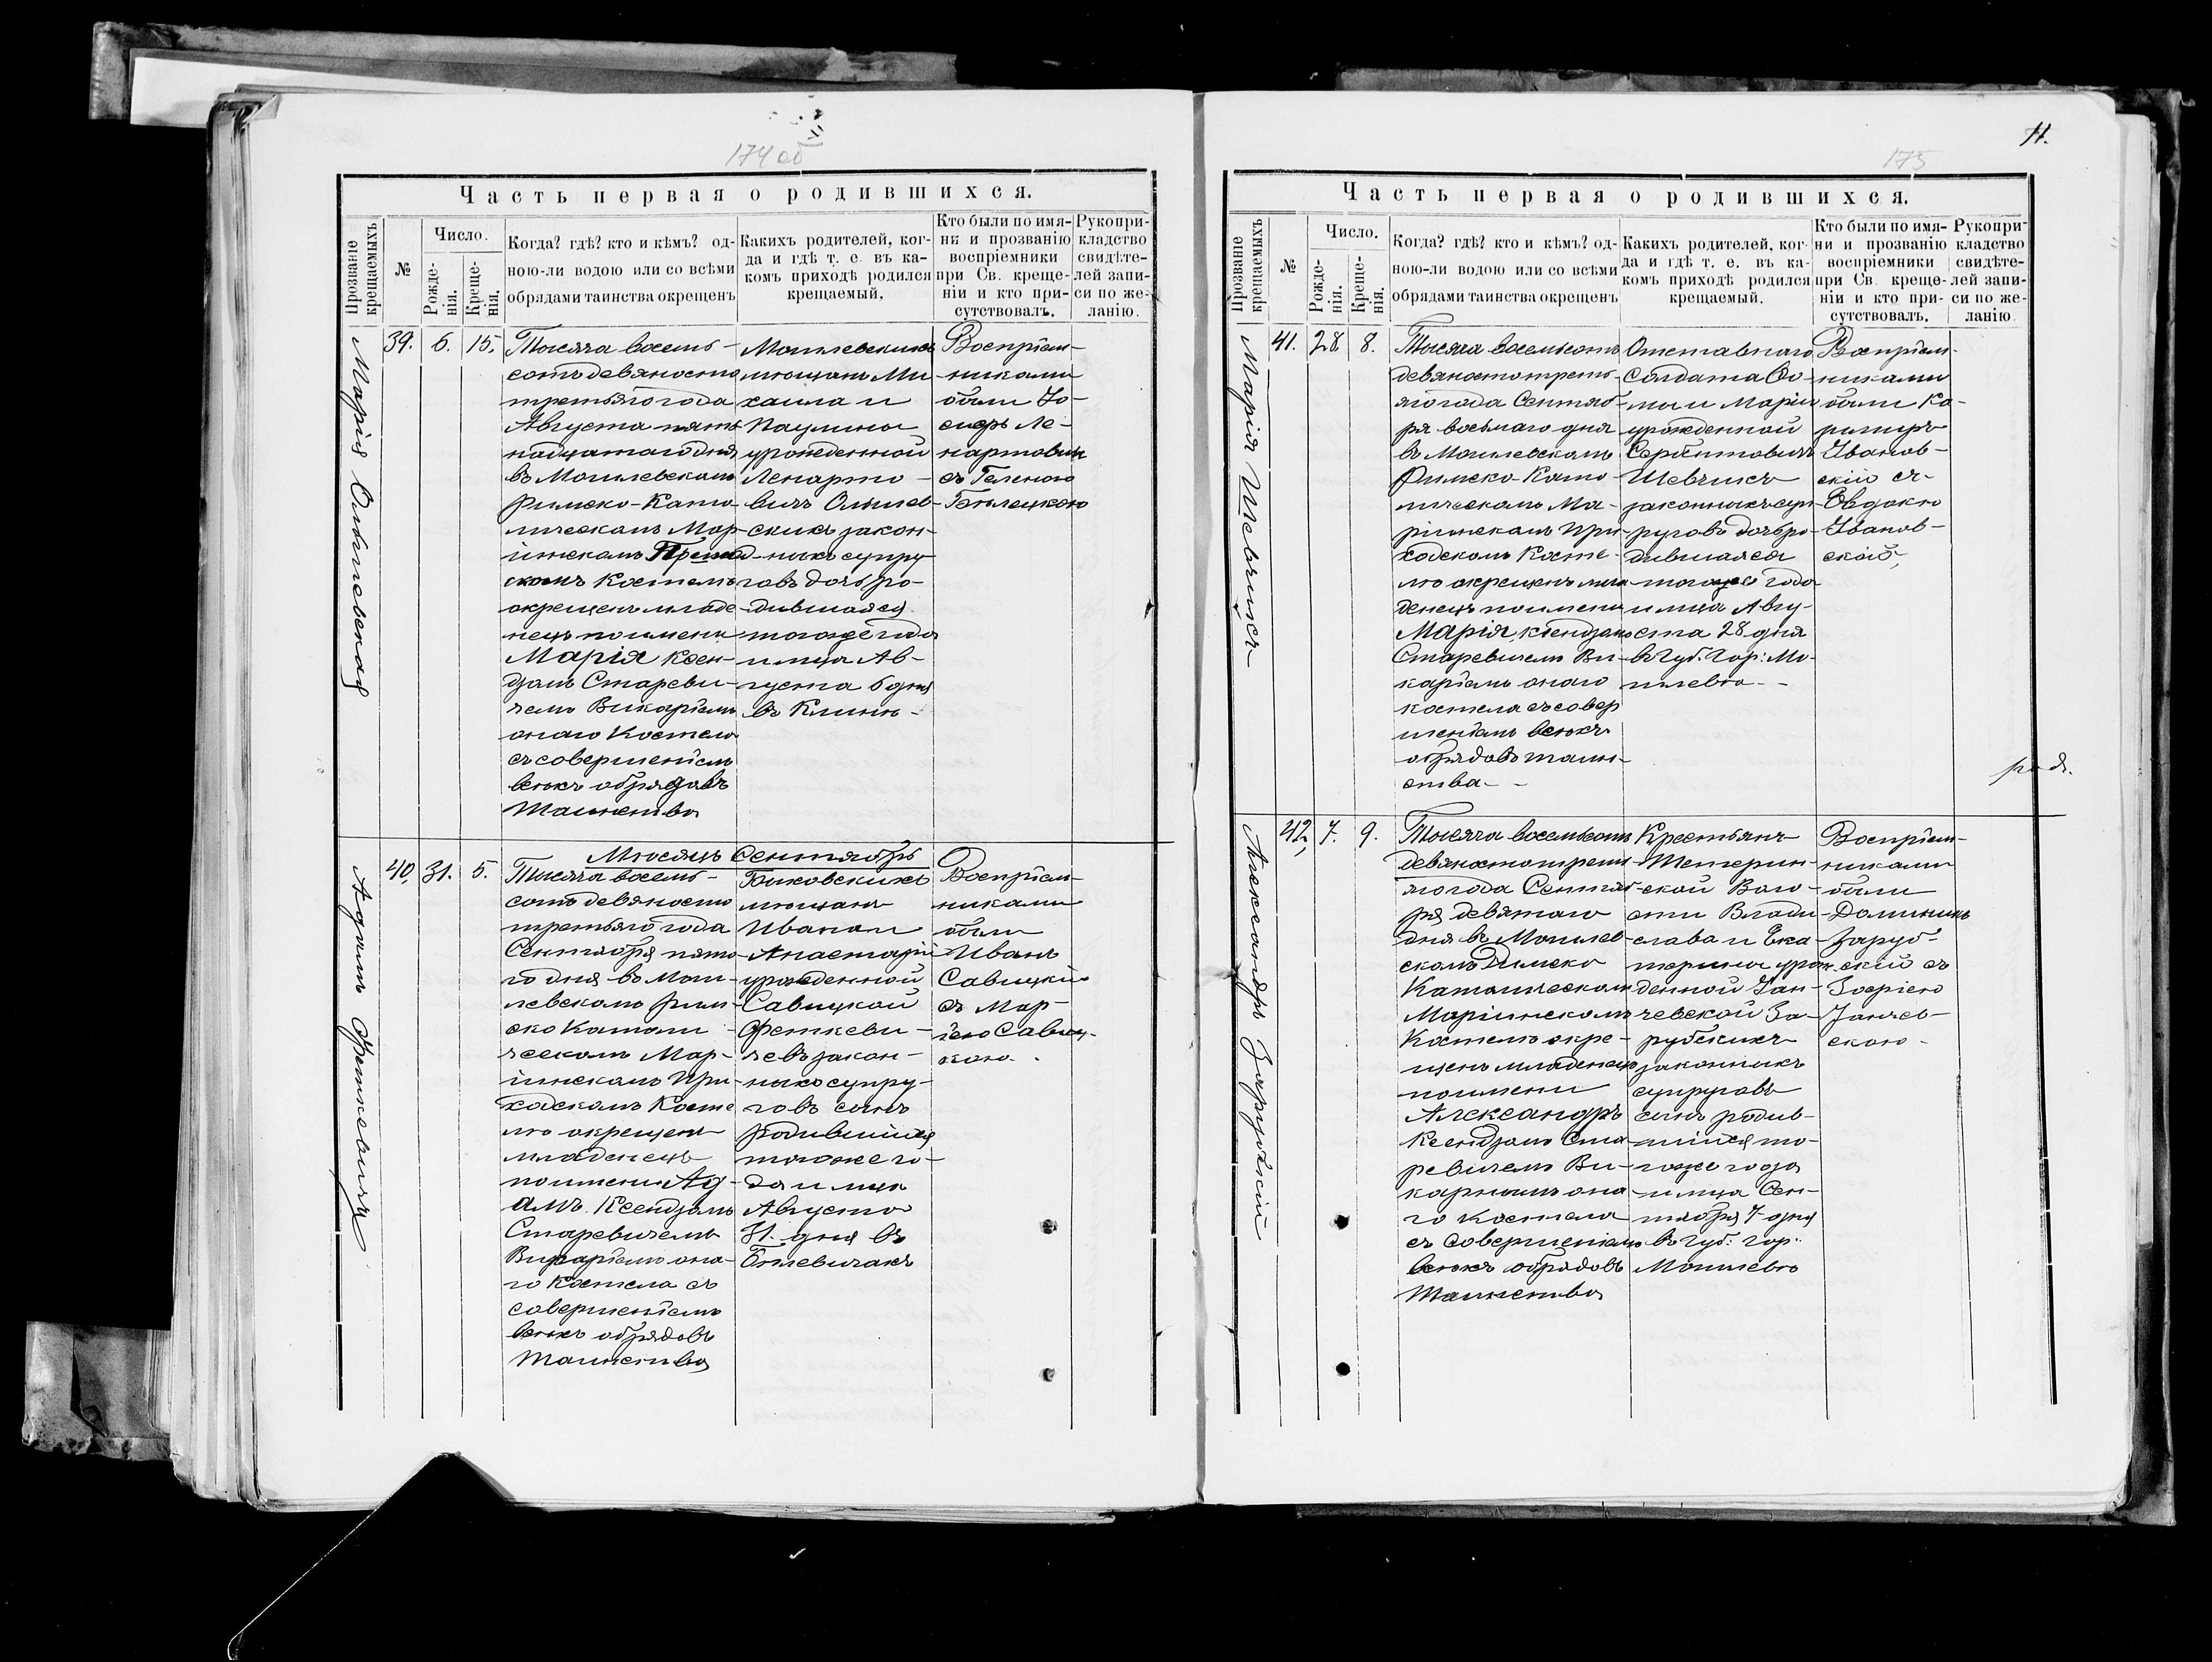 174 об
Часть первая о родившихся.
Прозваніе крещаемыхъ
№
Число.
Рожде-
нія.
Креще-
нія.
Когда? гдѣ? кто и кѣмъ? од-
ною-ли водою или со всѣми
обрядами таинства окрещенъ
Какихъ родителей, ког-
да и гдѣ т. е. въ ка-
комъ приходѣ родился
крещаемый.
Кто были по имя-
ни и прозванію
воспріемники
при Св. креще-
ніи и кто при-
сутствовалъ.
Рукопри-
кладство
свидѣте-
лей запи-
си по же-
ланію.
Марія
39. 6. 15.
Тысяча восемь-
сотъ девяносто
третьяго года
Августа пят-
надцатаго дня
въ Могилевскомъ
Римско-Като-
лическомъ Мар-
іинскомъ Приход
скомъ Костелѣ
окрещенъ младе-
нецъ по имени
Марія Ксен-
дзомъ Стареви-
чемъ Викаріемъ
онаго Костела
съ совершеніемъ
всѣхъ обрядовъ
Таинства
Могилевскихъ
мѣщанъ Ми-
хаила и
Паулины
урожденной
Ленарто-
вичъ
закон-
ныхъ супру-
говъ дочь ро-
дившаяся
тогоже года
и мца Ав-
густа 6 дня
въ
Воспріем-
никами
были Іо-
сифъ Ле-
нартовичъ
съ Геленою
Мѣсяцъ Сентябрь
Адамъ Феткевичъ
40. 31. 5.
Тысяча восемь-
сотъ девяносто
третьяго года
Сентября пята-
го дня въ Моги-
левскомъ Рим-
ско Католи-
ческомъ Мар-
іинскомъ При-
ходскомъ Косте
лѣ окрещенъ
младенецъ
по имени Ад-
амъ Ксендзомъ
Старевичемъ
Викаріемъ она-
го Костела съ
совершеніемъ
всѣхъ обрядовъ
Таинства
Быховскихъ
мѣщанъ
Ивана и
Анастазіи
урожденной
Савицкой
Феткеви-
чевъ закон-
ныхъ супру-
говъ сынъ
родившійся
тогоже го-
да и мца
Августа
31. дня въ
Воспріем-
никами
были
Иванъ
Савицкій
съ Мар-
іею Савиц-
кою.
11.
175
Часть первая о родившихся.
Прозваніе крещаемыхъ
№
Число.
Рожде-
нія.
Креще-
нія.
Когда? гдѣ? кто и кѣмъ? од-
ною-ли водою или со всѣми
обрядами таинства окрещенъ
Какихъ родителей, ког-
да и гдѣ т. е. въ ка-
комъ приходѣ родился
крещаемый.
Кто были по имя-
ни и прозванію
воспріемники
при Св. креще-
ніи и кто при-
сутствовалъ.
Рукопри-
кладство
свидѣте-
лей запи-
си по же-
ланію.
Марія Шевчукъ
41. 28. 8.
Тысяча восемьсотъ
девяносто треть-
яго года Сентяб-
ря восьмаго дня
въ Могилевскомъ
Римско-Като-
лическомъ Ма-
ріинскомъ При-
ходскомъ Косте-
лѣ окрещенъ мла-
денецъ по имени
Марія, ксендзомъ
Старевичемъ Ви-
каріемъ онаго
костела съ совер
шеніемъ всѣхъ
обрядовъ таин-
ства--
Отставнаго
Солдата Ѳо-
мы и Маріи
урожденной
Шевчукъ
законныхъ суп-
руговъ дочь ро-
дившаяся
тогоже года
и мца Авгу-
ста 28 дня
въ Губ. Гор: Мо-
гилевѣ--
Воспріем-
никами
были Ка-
зимиръ
Иванов-
скій съ
Иванов-
ской,
Александръ Зарубскій
42, 7. 9.
Тысяча восемьсотъ
девяносто треть-
яго года Сентяб-
ря девятаго
дня въ Могилев-
скомъ Римско
Католическомъ
Маріинскомъ
Костелѣ окре-
щенъ младенецъ
по имени
Александръ
Ксендзомъ Ста-
ревичемъ Ви-
каріемъ она-
го Костела
съ совершеніемъ
всѣхъ обрядовъ
Таинства
Крестьянъ
Тетерин-
ской Воло-
сти Влади-
слава и Ека-
терины урож-
денной Ян-
чевской За-
рубскихъ
законныхъ
супруговъ
сынъ родив-
шійся то-
гоже года
и мца Сен-
тября 7 дня
въ Губ: гор:
Могилевѣ
Воспріем-
никами
были
Доминикъ
Заруб-
скій съ
Зофіею
Янчев-
скою-